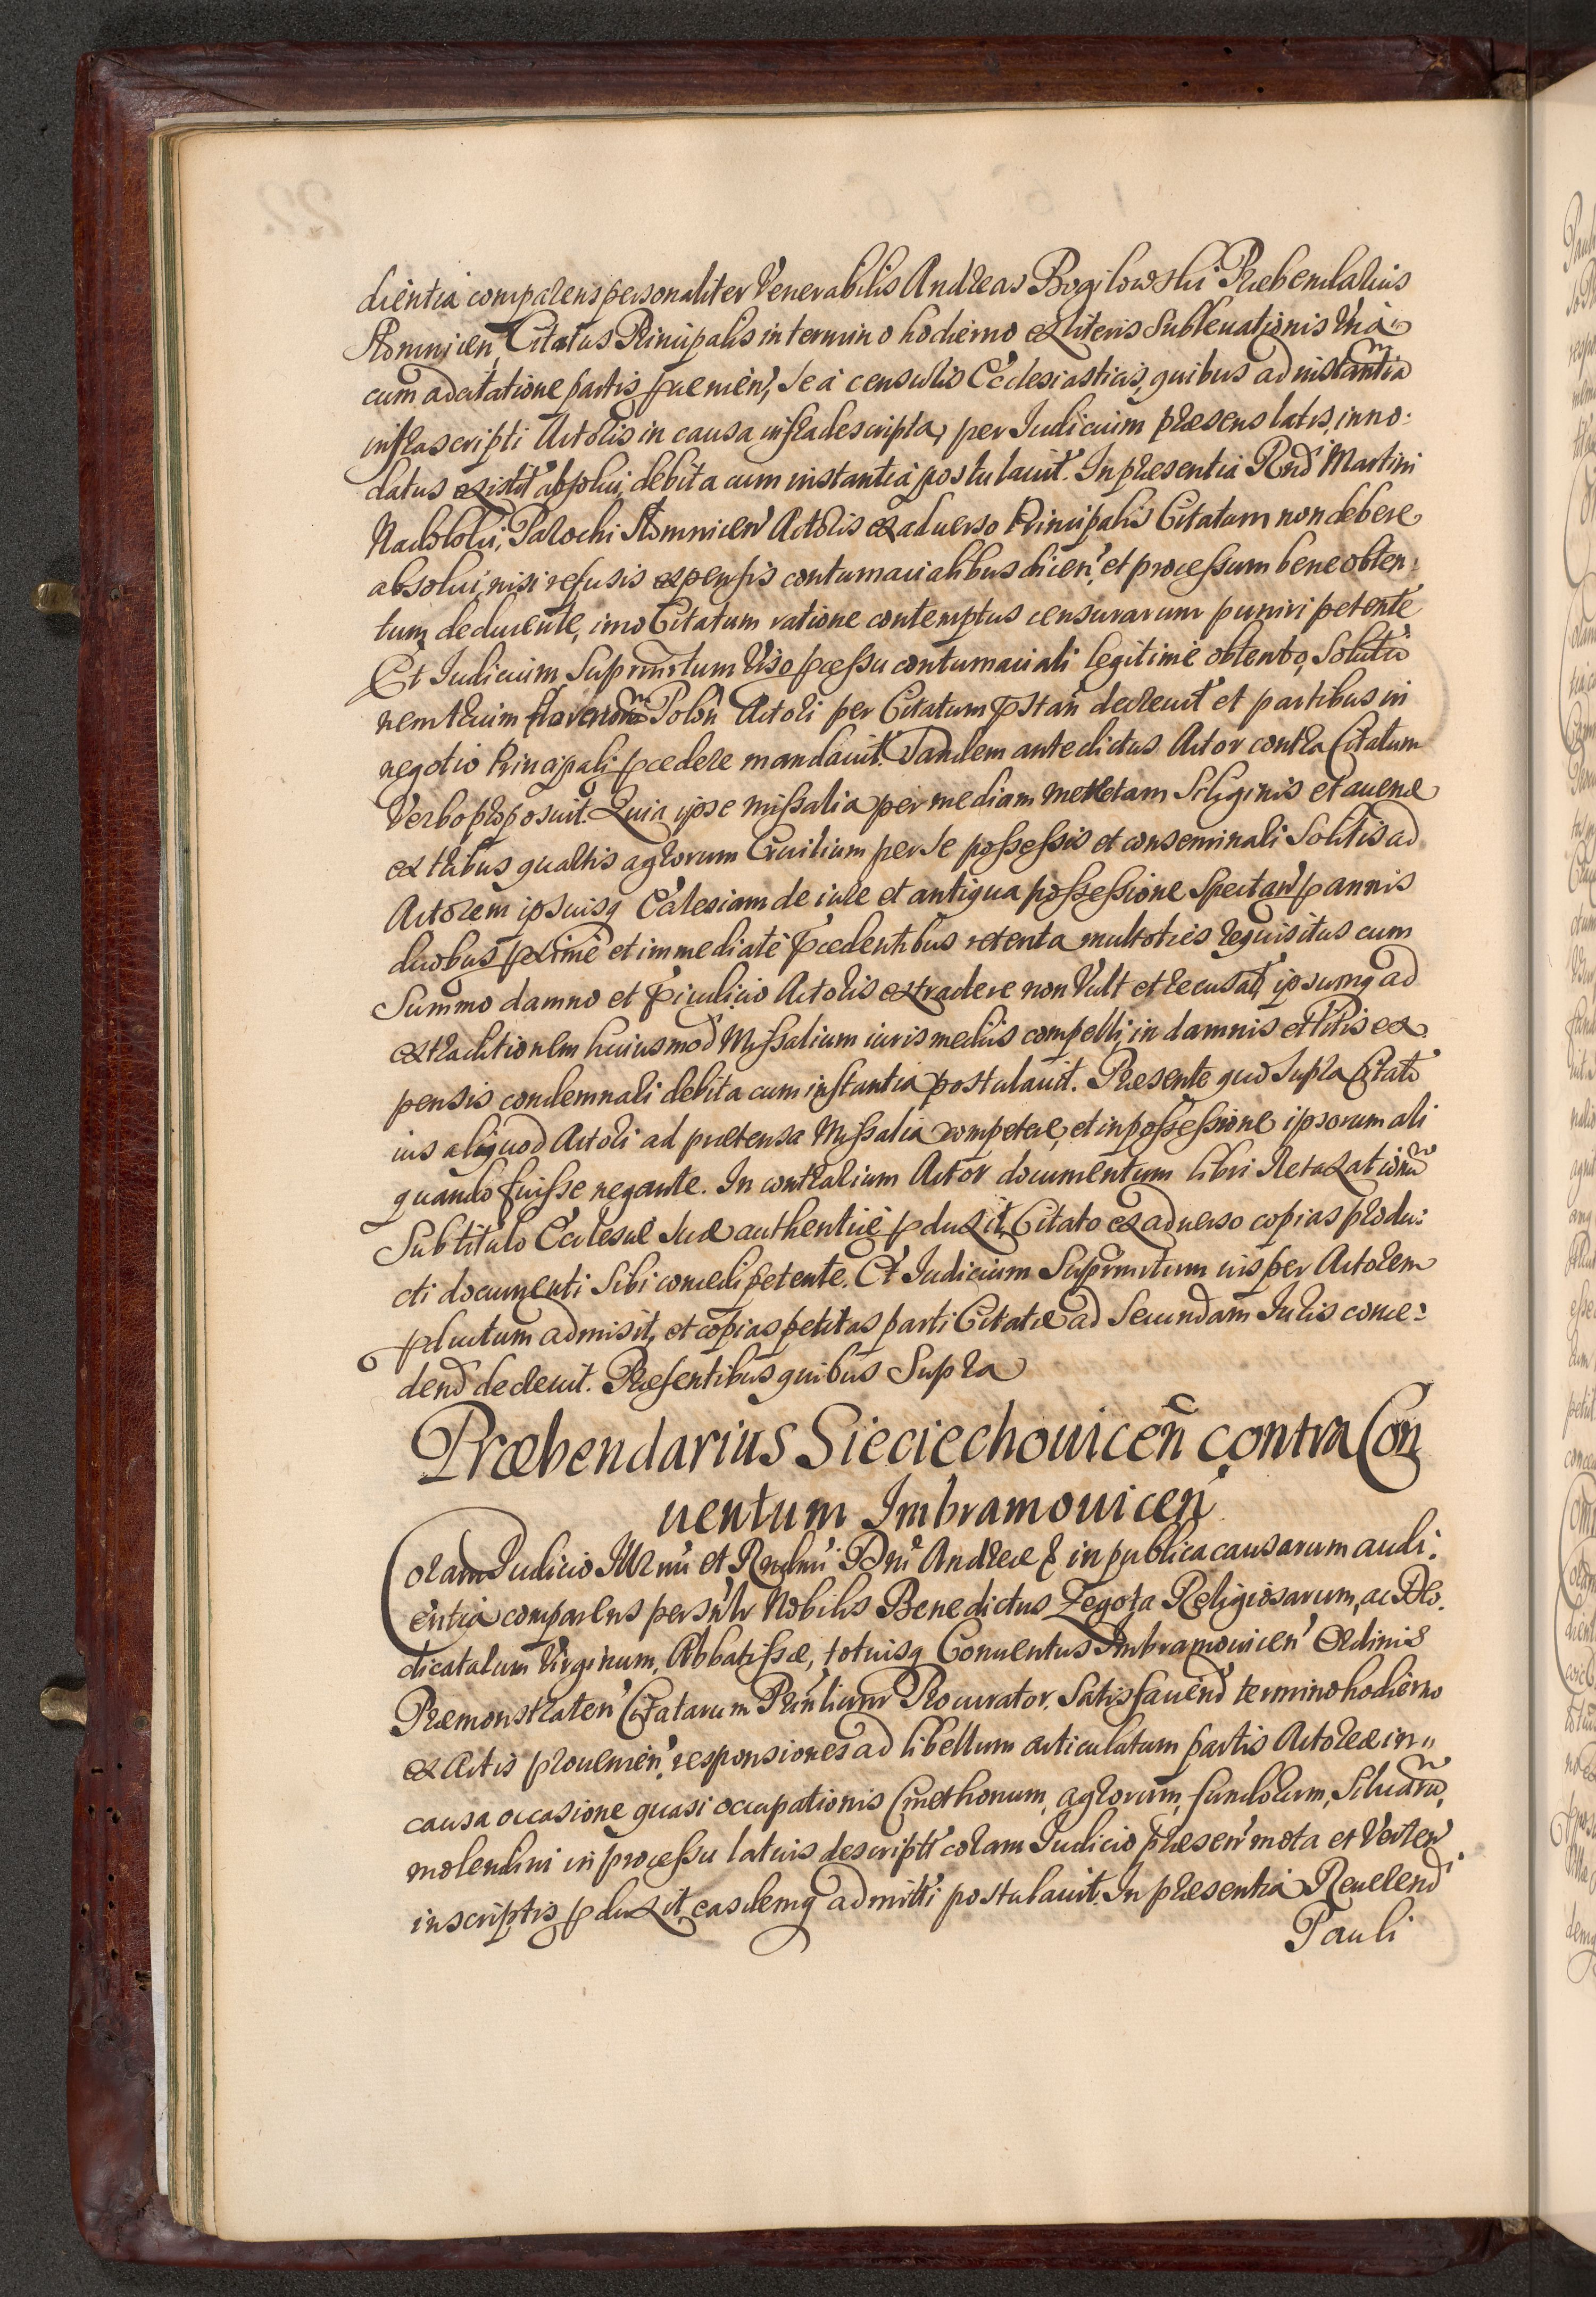 dientia comparens personaliter Venerabilis Andreas Bogilowski Præbendarius
Słomnicen, Citatus Principalis in termino hodierno ex literis Subleuationis Vná
cum adcitatione partis prouenien, Se á censuris Ecclesiasticis, quibus ad instantia
infrascripti Actoris in causa infradescripta, per Iudicium præsens latis, inno-
datus existit absolui, debita cum instantia postulauit. In præsentia Rnd Martini
Parochi Słomnicen Actoris ex aduerso Principalis Citatum non debere
absolui, nisi refusis expensis contumacialibus dicen, et processum bene obten-
tum deducente, imo Citatum ratione contemptus censurarum puniri petente
Et Iudicium Suprmtum Viso pcessu contumaciali legitimé obtento, Solutio
nem trium florenorum Polon Actori per Citatum pstan decreuit et partibus in
negotio Principali pcedere mandauit. Tandem antedictus Actor contra Citatum
Verbo proposuit. Quia ipse missalia per mediam metretam Siliginis et auenæ
ex tribus quartis agrorum Ciuilium per Se possessis et conseminari Solitis ad
Actorem ipsiusq Ecclesiam de iure et antiqua possessione Spectan p annis
duobus proximé et immediaté præcedentibus retenta multoties requisitus cum
Summo damno et piudicio Actoris extradere non Vult et recusat, ipsumq ad
extraditionem huiusmod Missalium iuris mediis compelli, in damnis et litis ex-
pensis condemnari debita cum instantia postulauit. Præsente quo Supra Citato
ius aliquod Actori ad prætensa Missalia competere, et in possessione ipsorum ali
quando fuisse negante. In contrarium Actor documentum libri Retaxationum
Sub titulo Ecclesiæ Suæ authenticé pduxit, Citato ex aduerso copias produ-
cti documenti Sibi concedi petente. Et Iudicium Suprmtum ius per Actorem
pductum admisit, et copias petitas parti Citatæ ad Secundam Iuris conce-
dend decreuit. Præsentibus quibus Supra
Præbendarius Sieciechouicen contra Con
uentum Imbramouicen
Coram Iudicio Illrmi et Rndmi Dni Andreæ & in publica causarum audi-
entia comparens persnlr Nobilis Benedictus Zegota Religiosarum, ac Deo
dicatarum Virginum, Abbatissæ, totiusq Conuentus Imbramouicen Ordinis
Præmonstraten Citatarum Prnlium Procurator. Satisfaciend termino hodierno
ex Actis prouenien, responsiones ad libellum articulatum partis Actoreæ in
causa occasione quasi occupationis Cmethonum, agrorum, fundorum, Siluarum,
molendini in processu latius descripti coram Iudicio præsen mota et Verten
in scriptis pduxit, easdemq admitti postulauit. In præsentia Reuerendi
Pauli